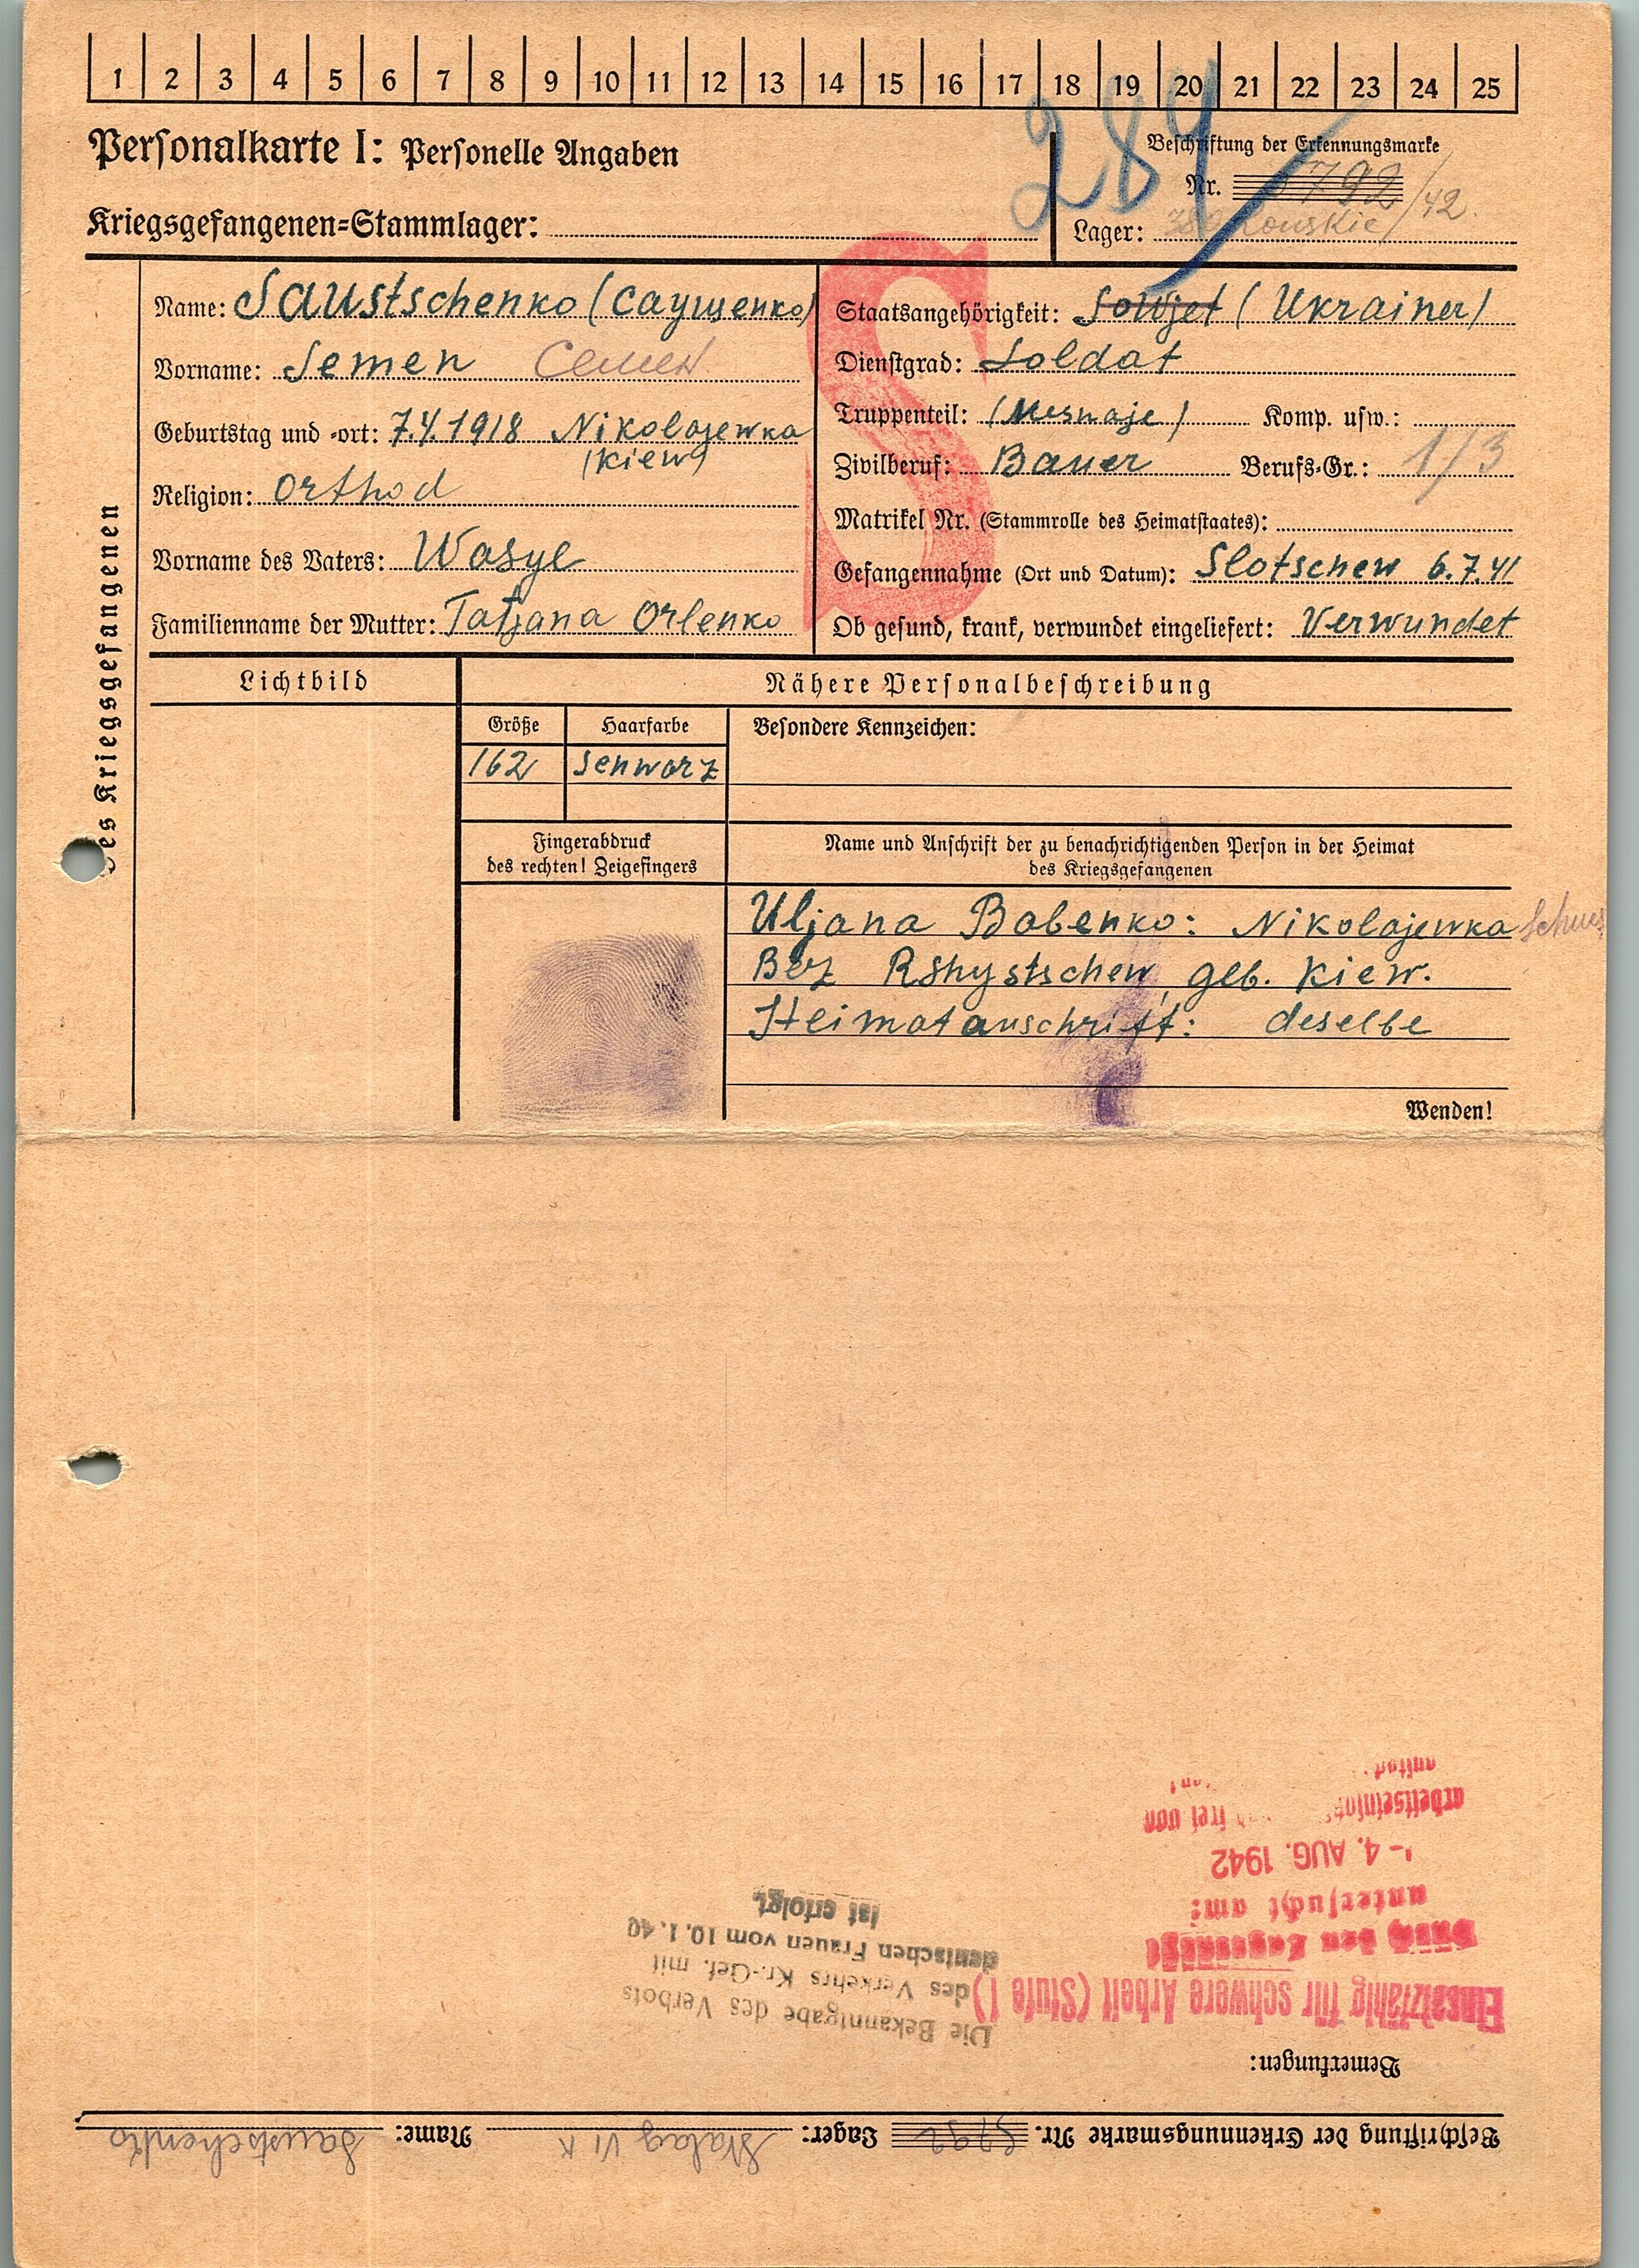 1 2 3 4 5 6 7 8 9 10 11 12 13 14 15 16 17 18 19 20 21 22 23 24 25
289
Personalkarte I: Personelle Angaben
Beschriftung der Erkennungsmarke
Nr. 5792/42.
Kriegsgefangenen=Stammlager:
Lager:
des Kriegsgefangenen
Name: Saustschenko (Саущенко)
Vorname: Semen Семен
Geburtstag und -ort: 7.4.1918 Nikolajewka
(Kiew)
Religion: Orthod
Vorname des Vaters: Wasyl
Familienname der Mutter: Tatjana Orlenko
S
Staatsangehörigkeit: Sowjet (Ukrainer)
Dienstgrad: Soldat
Truppenteil: Komp. usw.:
Zivilberuf: Bauer Berufs-Gr.: 1/3
Matrikel Nr. (Stammrolle des Heimatstaates):
Gefangennahme (Ort und Datum): Slotschew 6.7.41
Ob gesund, krank, verwundet eingeliefert: Verwundet
Lichtbild
Nähere Personalbeschreibung
Größe Haarfarbe Besondere Kennzeichen:
162 schwarz
Fingerabdruck
des rechten! Zeigefingers
Name und Anschrift der zu benachrichtigenden Person in der Heimat
des Kriegsgefangenen
Uljana Babenko: Nikolajewka
Bez Rshystschew, geb. Kiew.
Heimatanschrift: deselbe
Wenden!
Beschriftung der Erkennungsmarke Nr. 5792 Lager: Stalag VI K Name: Saustschenko
Bemerkungen:
Einsatzfähig für schwere Arbeit (Stufe 1)
untersucht am:
- 4. AUG. 1942
frei von
Die Bekanntgabe des Verbots
des Verkehrs Kr.-Gef. mit
deutschen Frauen vom 10.1.40
ist erfolgt.